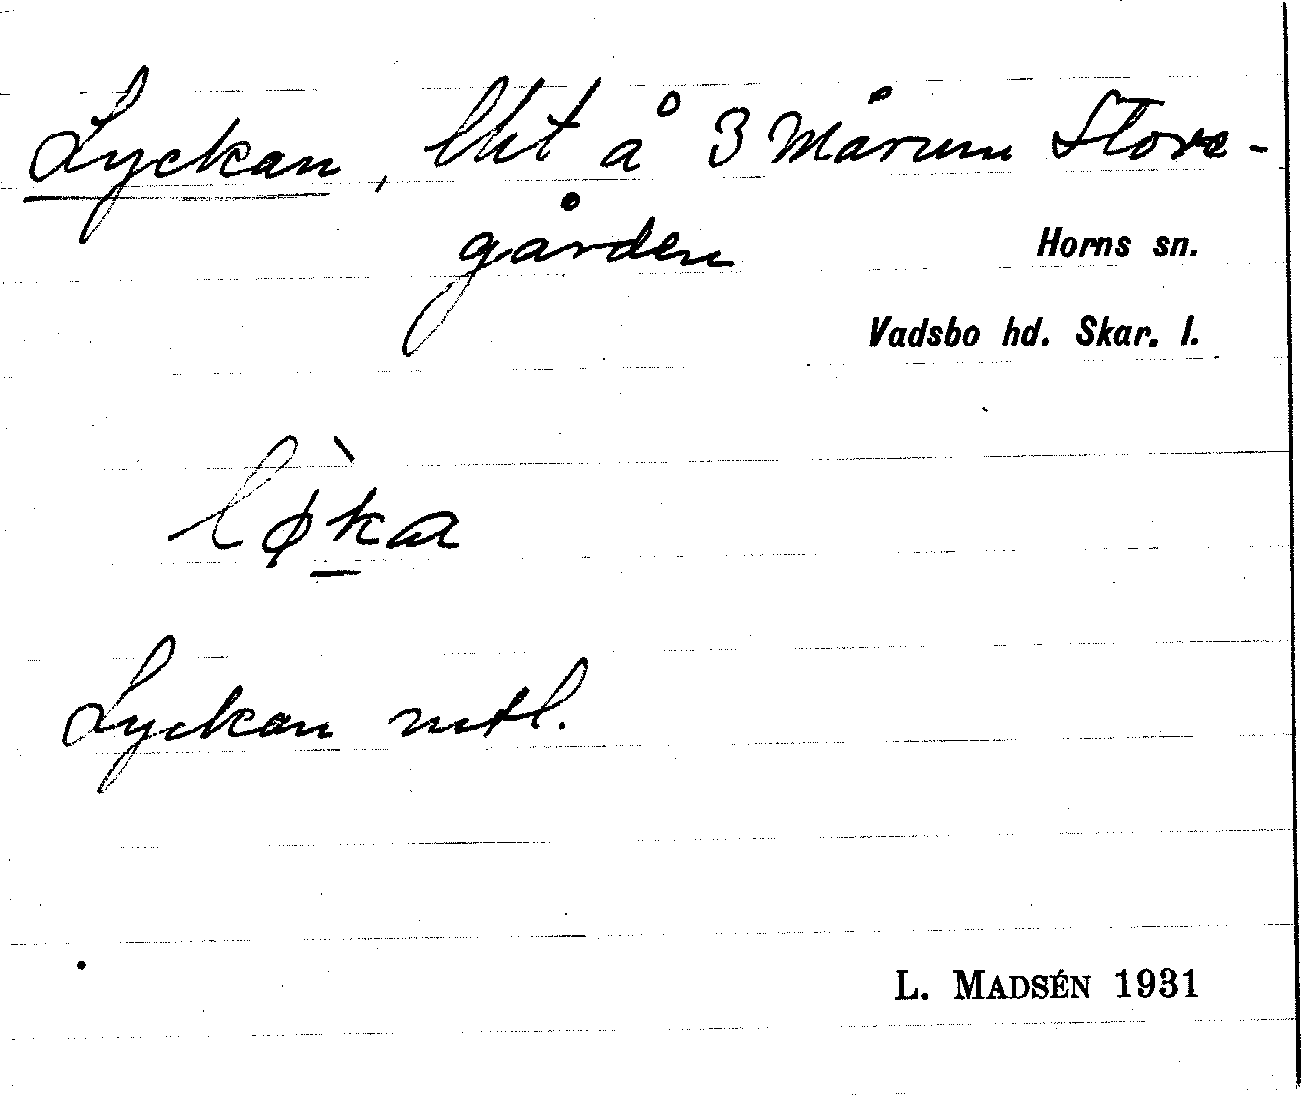 Lyckan, lht å 3 Mårum Store-
gården
Horns sn.
Vadsbo hd. Skar. l.
lø̀ḵa
Lyckan mtl.
L. MADSÉN 1931